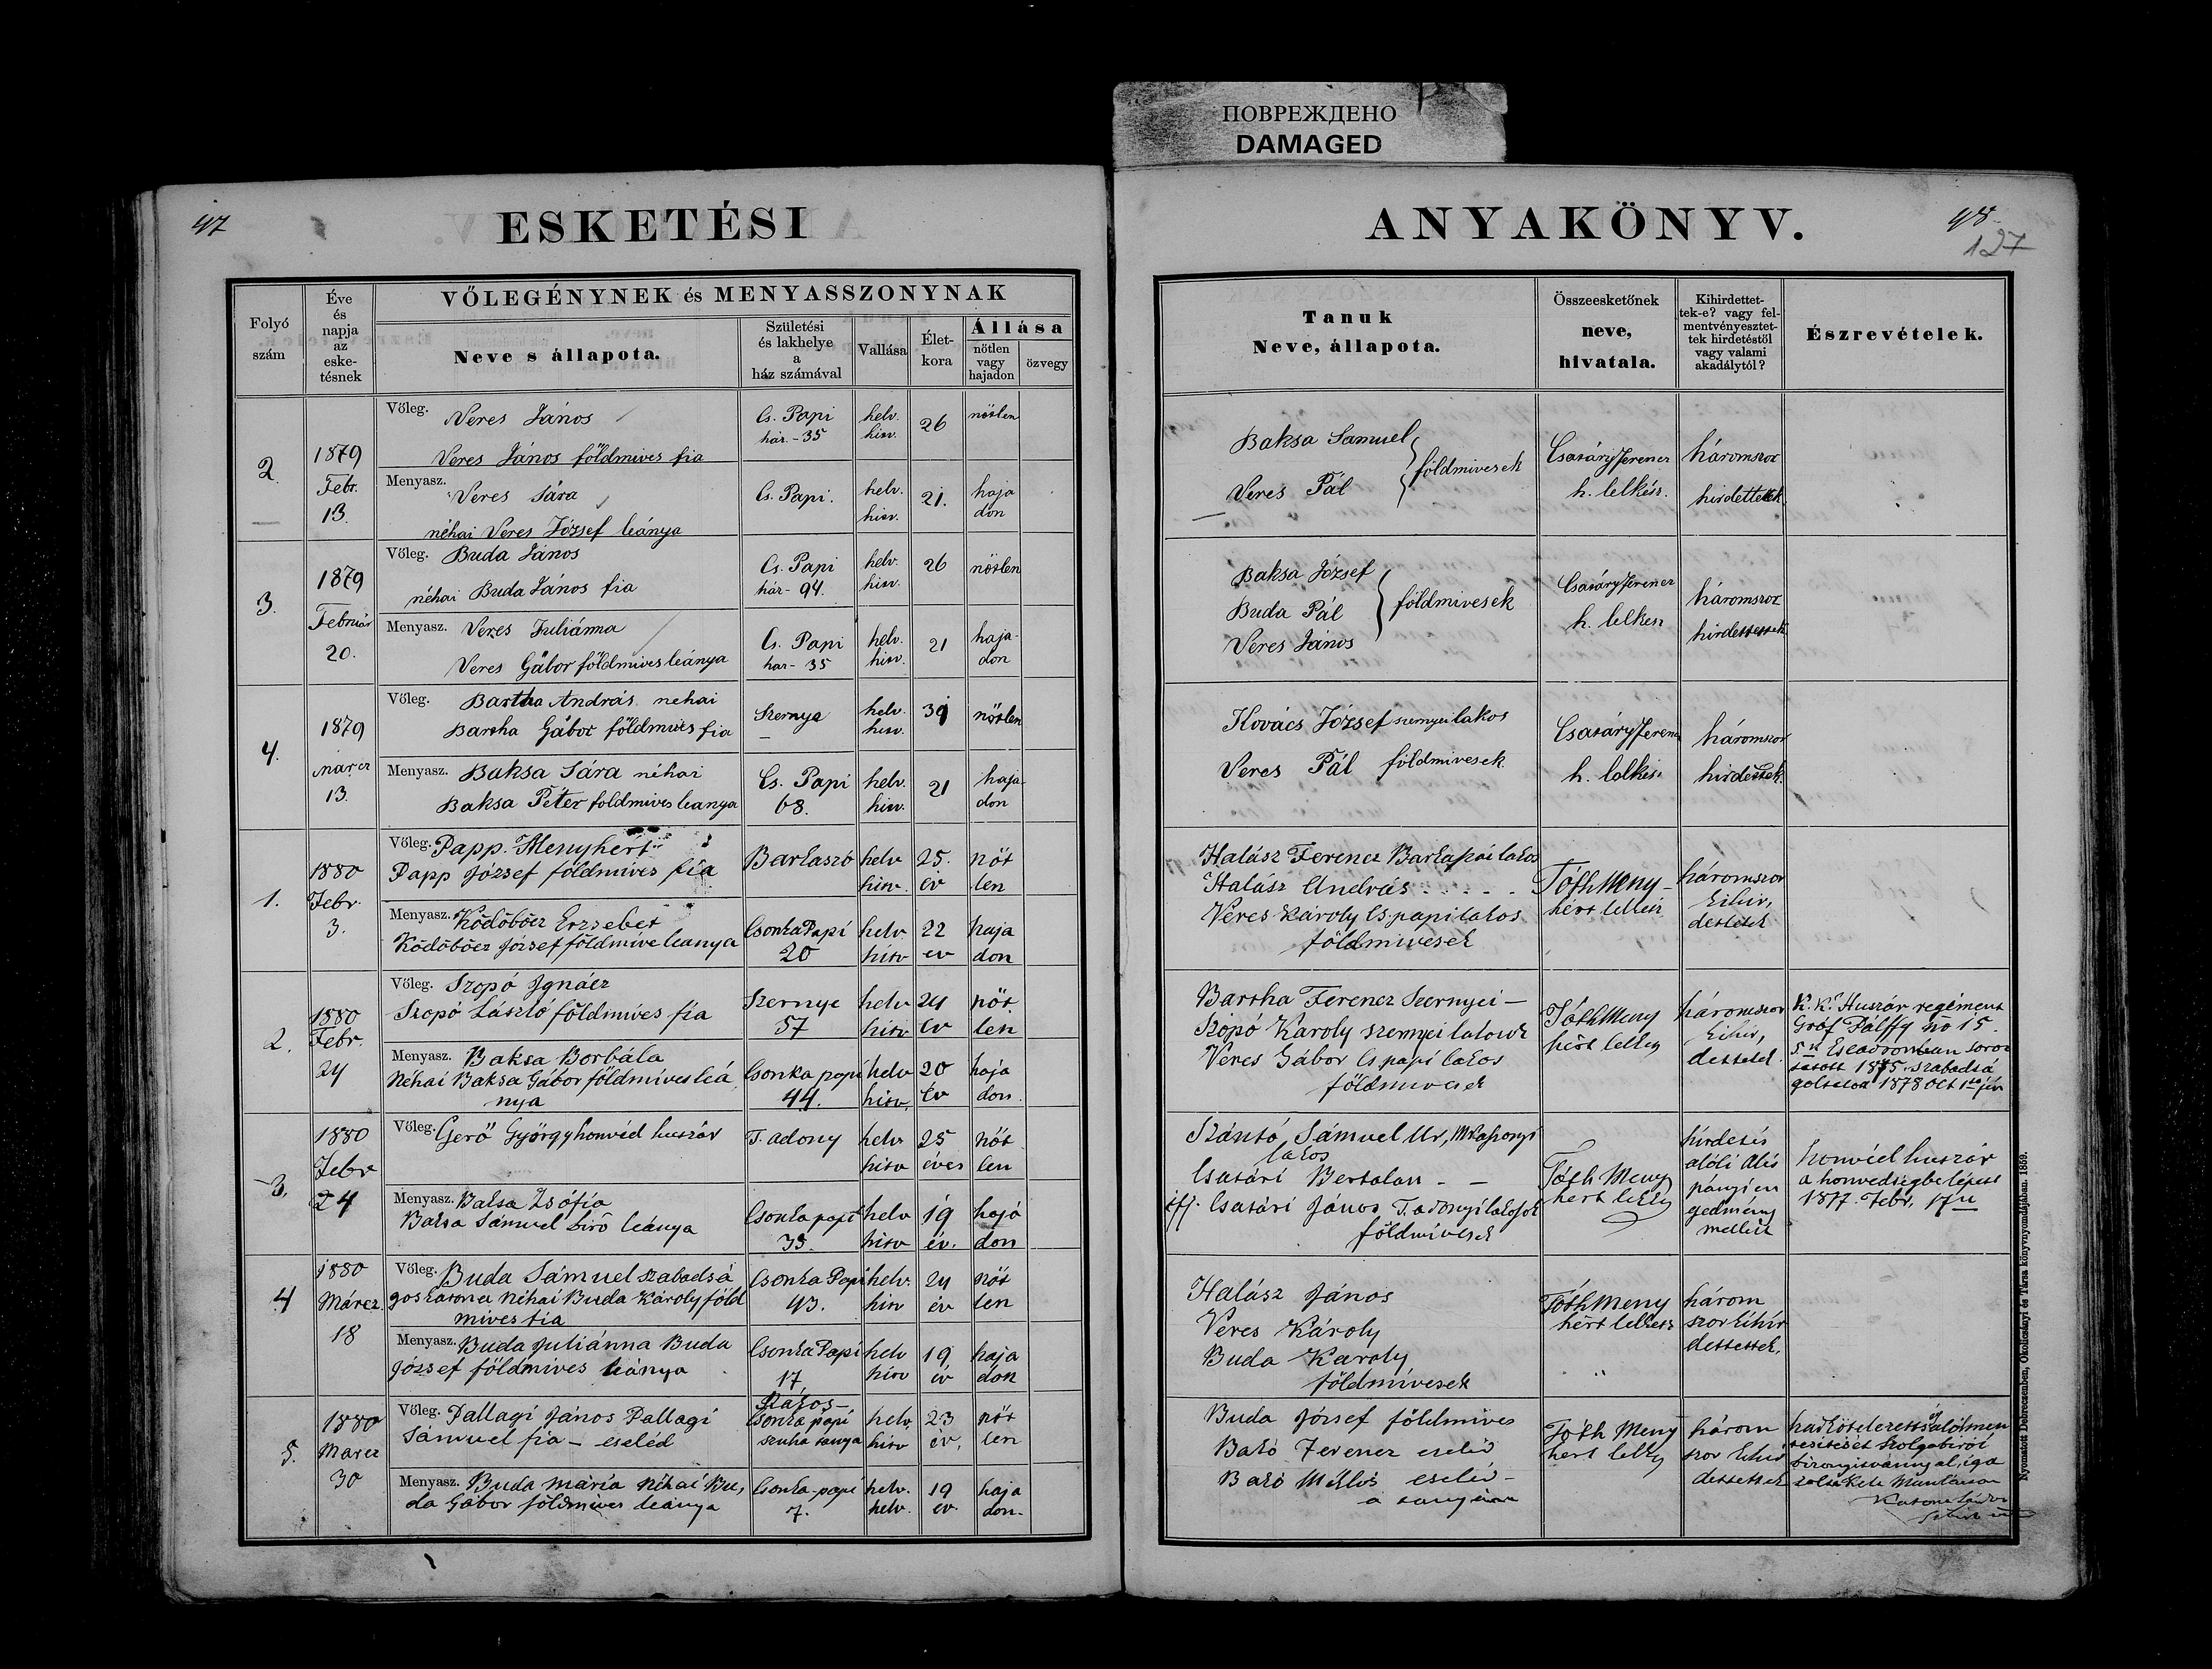 ПОВРЕЖДЕНО
DAMAGED
47
ESKETÉSI
Folyó
szám
Éve
és
napja
az
eske-
tésnek
VŐLEGÉNYNEK és MENYASSZONYNAK
Neve s állapota.
Születési
és lakhelye
a
ház számával
Vallása
Élet-
kora
Állása
nőtlen
vagy
hajadon
özvegy
2.
1879
Febr.
13.
Vőleg. Veres János
Veres János földmives fia
Cs. Papi
ház.-35
helv.
hitv.
26
nőtlen
Menyasz.
Veres Sára
néhai Veres József leánya
Cs. Papi.
helv.
hitv.
21.
haja
don
3.
1879
Február
20.
Vőleg. Buda János
néhai Buda János fia
Cs. Papi
ház- 94.
helv.
hitv.
26
nőtlen
Menyasz. Veres Juliánna
Veres Gábor földmives leánya
Cs. Papi
ház- 35
helv.
hitv.
21
haja-
don
4.
1879
Marcz
13.
Vőleg. Bartha András nehai
Bartha Gábor földmives fia
Szernye
helv.
hitv.
nőtlen
Menyasz. Baksa Sára néhai
Baksa Péter foldmives leanya
Cs. Papi
68.
helv.
hitv.
21
haja-
don
1.
1880
Febr.
3.
Vőleg. Papp Menyhért
Papp József földmives fia
Barkaszó
helv
hitv.
25.
év
nőt
len
Menyasz. Ködöböcz Erzsebet
Ködöböcz József földmive leanya
Csonka Papi
20
helv.
hitv
22
ev
haja
don
2.
1880
Febr.
24
Vőleg. Szopó Ignácz
Szopó László földmives fia
Szernye
57
helv
hitv
24
év
nőt.
len
Menyasz. Baksa Borbála
Néhai Baksa Gábor földmives leá
nya
Csonka papi
44.
helv
hitv.
20
év
haja
don.
3.
1880
Febr
24
Vőleg. Gerő György honvéd huszár
T. adony
helv
hitv
25
éves
nőt
len
Menyasz. Baksa Zsófia
Baksa Sámuel biró leánya
Csonka papi
35.
helv
hitv
19
év.
haja
don
4
1880
Márcz.
18
Vőleg. Buda Sámuel szabadsá
gos katona néhai Buda Károly föld
mives fia
Csonka Papi
43.
helv.
hitv
24
év
nőt
len
Menyasz. Buda Juliánna Buda
József földmives leánya
Csonka Papi
17
helv
hitv
19
év
haja
don
5.
1880
Marcz
30
Vőleg. Pallagi János Pallagi
Sámuel fia – cseléd
Rákos-
Csonka papi
szuha tanya
helv.
hitv
23
év.
nőt
len
Menyasz. Buda Mária Néhai Bu,
da Gábor földmives leánya
Csonka papi
7.
helv.
helv.
19
év.
haja
don.
ANYAKÖNYV.
48
127
Tanuk
Neve, állapota.
Összeesketőnek
neve,
hivatala.
Kihirdettet-
tek-e? vagy fel-
mentvényesztet-
tek hirdetéstől
vagy valami
akadálytól?
Észrevételek.
Baksa Samuel
Veres Pál
földmivesek
Csatáry Ferencz
h. lelkész.
háromszor
hirdettettek.
Baksa József
Buda Pál
Veres János
földmivesek
Csatáry Ferencz
h. lelkesz
háromszor
hirdettettek.
Kovács József szernyei lakos
Veres Pál földmivesek
Csatáry Ferencz
h. lelkész
háromszor
hirdettek.
Halász Ferencz Barkaszói lakos
Halász András . . . . .
Veres Károly Cs. papi lakos
földmivesek
Tóth Meny-
hért lelkész
háromszor
kihir,
dettetek
Bartha Ferencz Szernyei –
Szopó Karoly szernyei lakosok
Veres Gábor Cs papi lakos
földmivesek
Tóth Meny
hért lelkész
háromszor
kihir,
dettetek.
K. K. Huszár regiment
Gróf Pálffy no 15.
tatott 1875. szabadsá
goltatott 1878 Oct
Szántó Sámuel Ur,
lakos
Csatári Bertalan - -
iff. Csatári János T. adonyi lakosok
földmivesek
Tóth Meny
hert lelkész
hirdetés
alóli
mellett
honvéd huszár
a honvedségbe lépett
1877. Febr. 17én
Halász János
Veres Károly
Buda Karoly
földmivesek
Tóth Meny
hért lelkesz
három
szor kihir
dettettek.
Buda József földmives
Bakó Ferencz cseléd
Bakó Miklós cseléd –
a tanyáan
Tóth Meny
hert lelkész
három
szor kihir
dettettek
Nyomatott Debreczenben, Okolicsányi és Társa könyvnyomdájában. 1859.